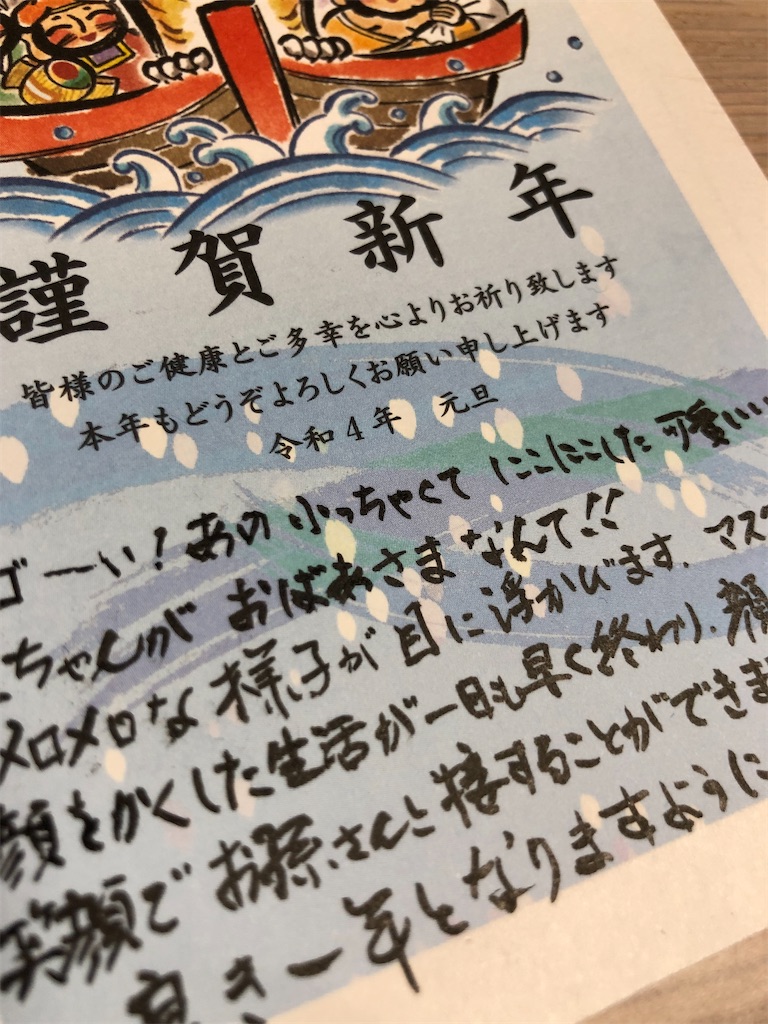 謹賀新年
皆様のご健康とご多幸を心よりお祈り致します
本年もどうぞよろしくお願い申し上げます
令和4年 元旦
ゴーい！あの小っちゃくてにこにこした可愛いい
ちゃんがおばあさまなんて!!
メロメロな様子が目に浮かびます。マスク
顔をかくした生活が一日も早く終わり、顔
笑顔でお孫さんと接することができま
良き一年となりますように